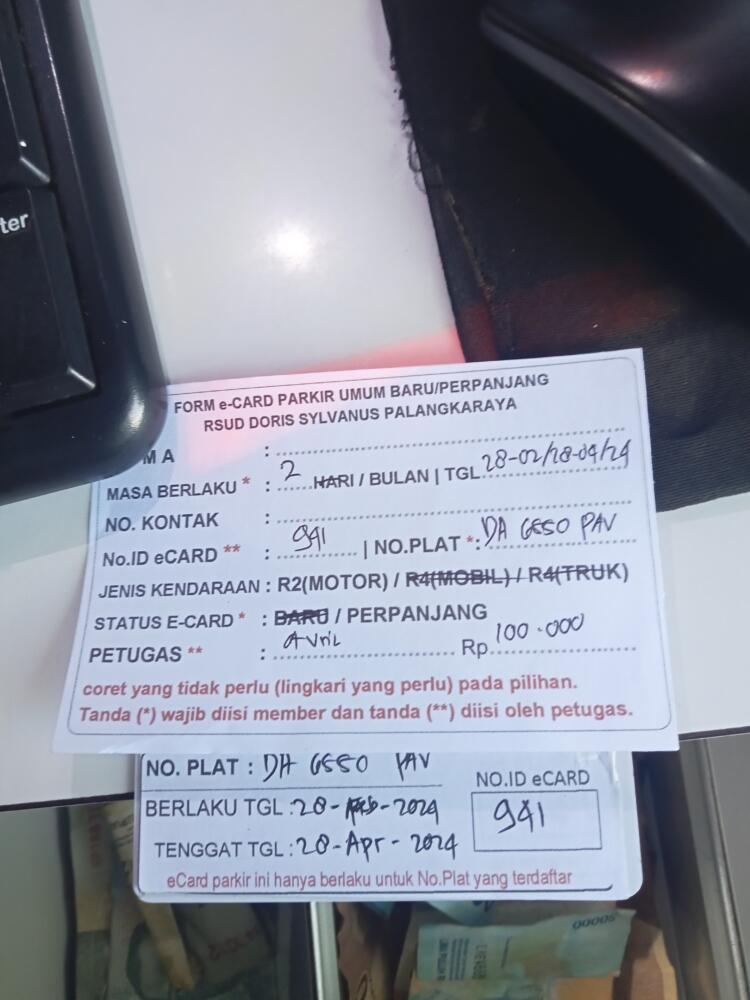 ter
FORM e-CARD PARKIR UMUM BARU/PERPANJANG
RSUD DORIS SYLVANUS PALANGKARAYA
M A :
MASA BERLAKU * : 2 HARI / BULAN | TGL 28-02/28-04/24
NO. KONTAK :
No.ID eCARD ** : 941 | NO.PLAT *: DA 6550 PAV
JENIS KENDARAAN : R2(MOTOR) / R4(MOBIL) / R4(TRUK)
STATUS E-CARD * : BARU / PERPANJANG
PETUGAS ** : Avril Rp 100.000
coret yang tidak perlu (lingkari yang perlu) pada pilihan.
Tanda (*) wajib diisi member dan tanda (**) diisi oleh petugas.
NO. PLAT : DA 6550 PAV
NO.ID eCARD
BERLAKU TGL : 28-Feb-2024
941
TENGGAT TGL : 28-Apr-2024
eCard parkir ini hanya berlaku untuk No.Plat yang terdaftar